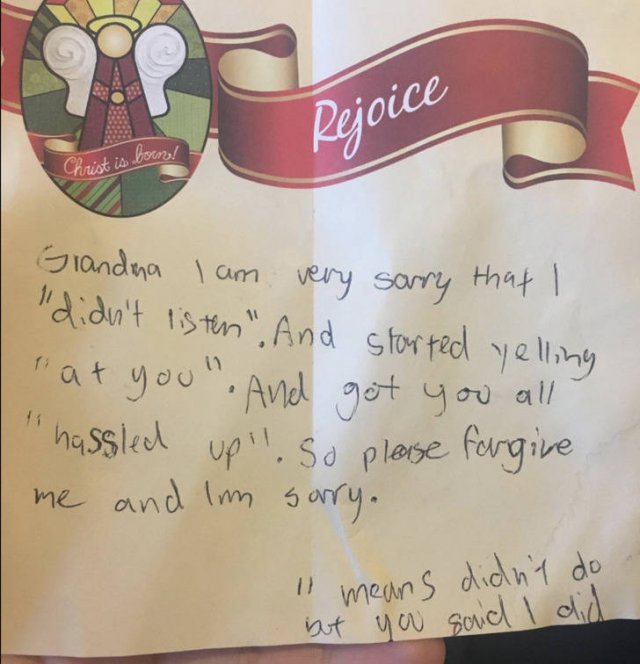 Christ is born!
Rejoice
Grandma I am very sorry that I
"didn't listen". And started yelling
"at you". And got you all
"hassled up". So please forgive
me and Im sorry.
" means didn't do
but you said I did